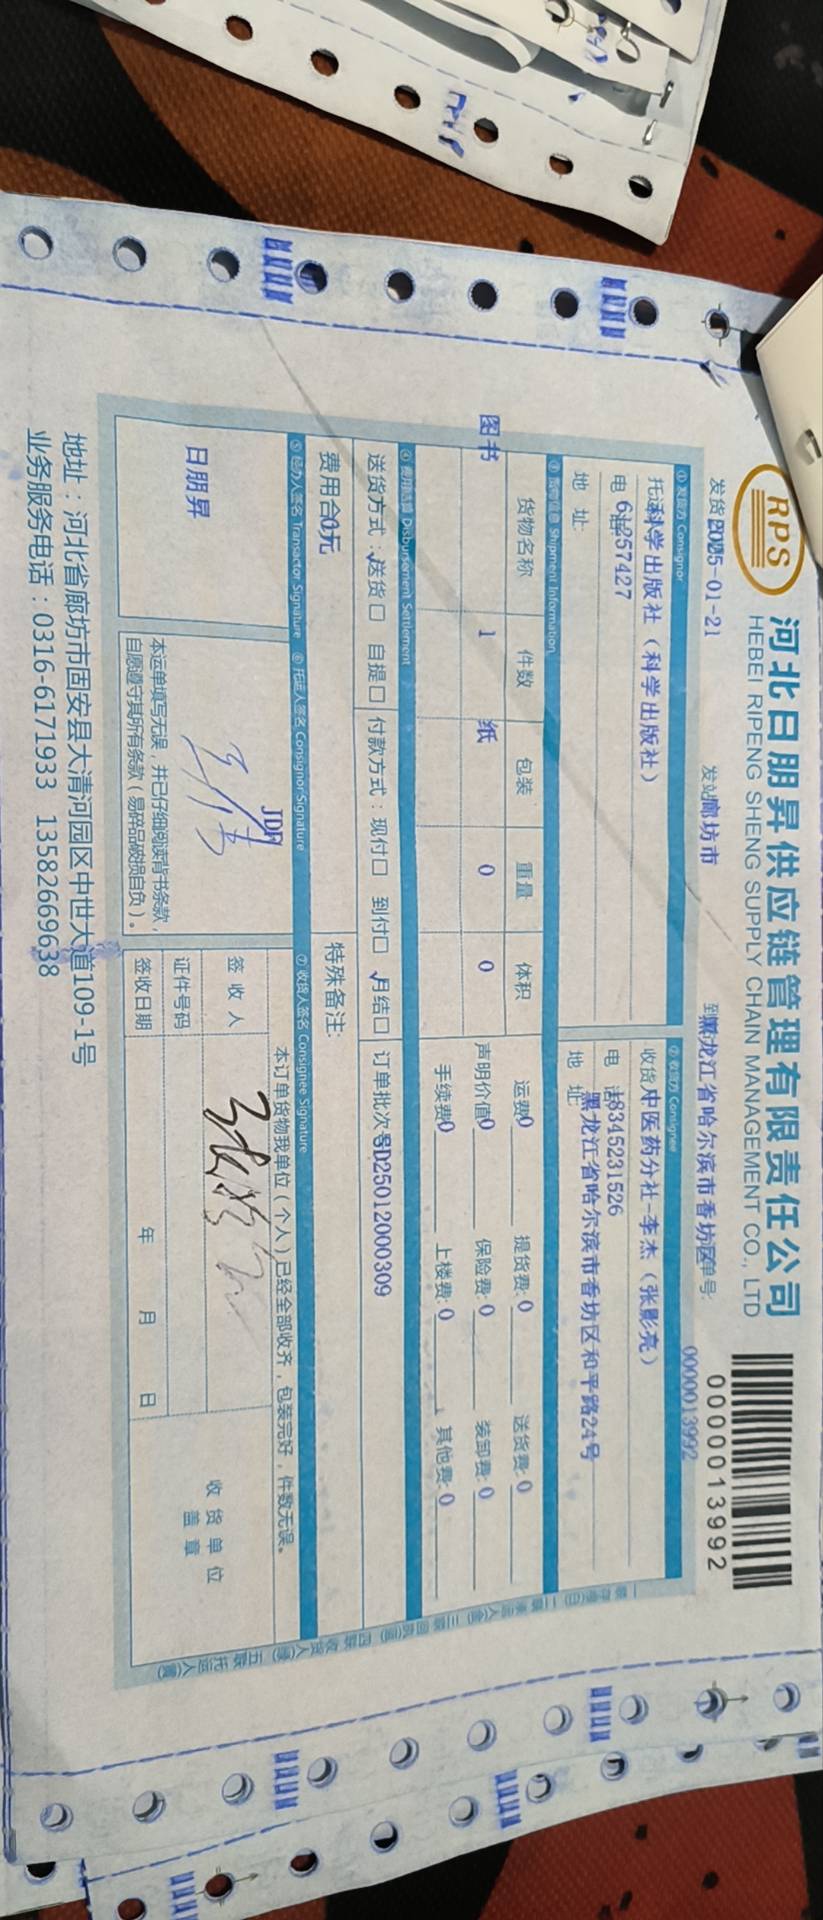 RPS
河北日朋昇供应链管理有限责任公司
HEBEI RIPENG SHENG SUPPLY CHAIN MANAGEMENT CO., LTD
0000013992
0000013992
发货 2025-01-21 发站 廊坊市 到 黑龙江省哈尔滨市香坊区 单号:
① 发货方 Consignor ② 收货方 Consignee
托 科学出版社（科学出版社） 收货 中医药分社-李杰（张影亮）
电 257427 电 话 18345231526
地 址: 地 址: 黑龙江省哈尔滨市香坊区和平路24号
③ 货物信息 Shipment Information
货物名称 件数 包装 重量 体积 运费 0 提货费: 0 送货费: 0
图书 1 纸 0 0 声明价值 0 保险费: 0 装卸费: 0
手续费 0 上楼费: 0 其他费: 0
④ 费用结算 Disbursement Settlement
送货方式: √送货□ 自提□ 付款方式: 现付□ 到付□ 月结□ 订单批次号 SD25012000309
费用合 0元 特殊备注:
⑤ 经办人签名 Transactor Signature ⑥ 托运人签名 Consignor Signature ⑦ 收货人签名 Consignee Signature
日朋昇
JDF
本运单填写无误，并已仔细阅读背书条款，
自愿遵守其所有条款（易碎品破损自负）。
本订单货物我单位（个人）已经全部收齐，包装完好，件数无误。
签收人
证件号码
签收日期 年 月 日
收货单位
盖章
地址：河北省廊坊市固安县大清河园区中世大道109-1号
业务服务电话：0316-6171933 13582669638